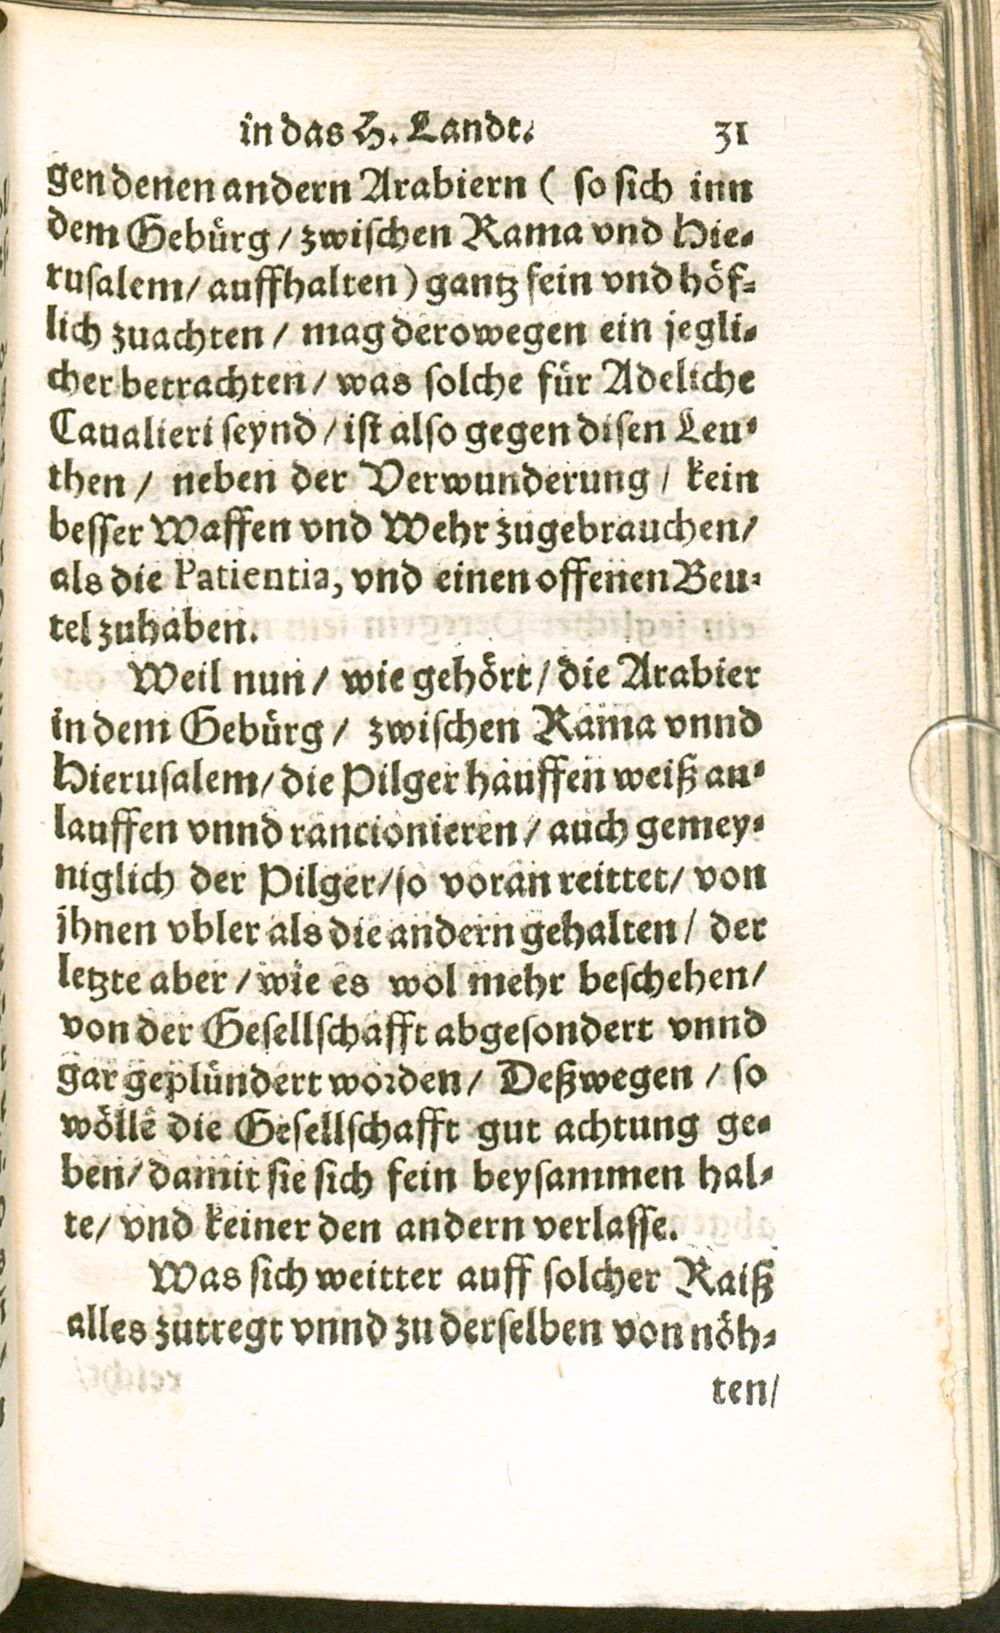 in das H. Landt. 31
gen denen andern Arabiern ( so sich inn
dem Gebürg / zwischen Rama vnd Hie-
rusalem / auffhalten ) gantz fein vnd höf-
lich zuachten / mag derowegen ein jegli-
cher betrachten / was solche für Adeliche
Caualieri seynd / ist also gegen disen Leu-
then / neben der Verwunderung / kein
besser Waffen vnd Wehr zugebrauchen /
als die Patientia, vnd einen offenen Beu-
tel zuhaben.
Weil nun / wie gehört / die Arabier
in dem Gebürg / zwischen Rama vnnd
Hierusalem / die Pilger hauffen weiß an-
lauffen vnnd rancionieren / auch gemey-
niglich der Pilger / so voran reittet / von
jhnen vbler als die andern gehalten / der
letzte aber / wie es wol mehr beschehen /
von der Gesellschafft abgesondert vnnd
gar geplündert worden / Deßwegen / so
wölle die Gesellschafft gut achtung ge-
ben / damit sie sich fein beysammen hal-
te / vnd keiner den andern verlasse.
Was sich weitter auff solcher Raiß
alles zutregt vnnd zu derselben von nöh-
ten /